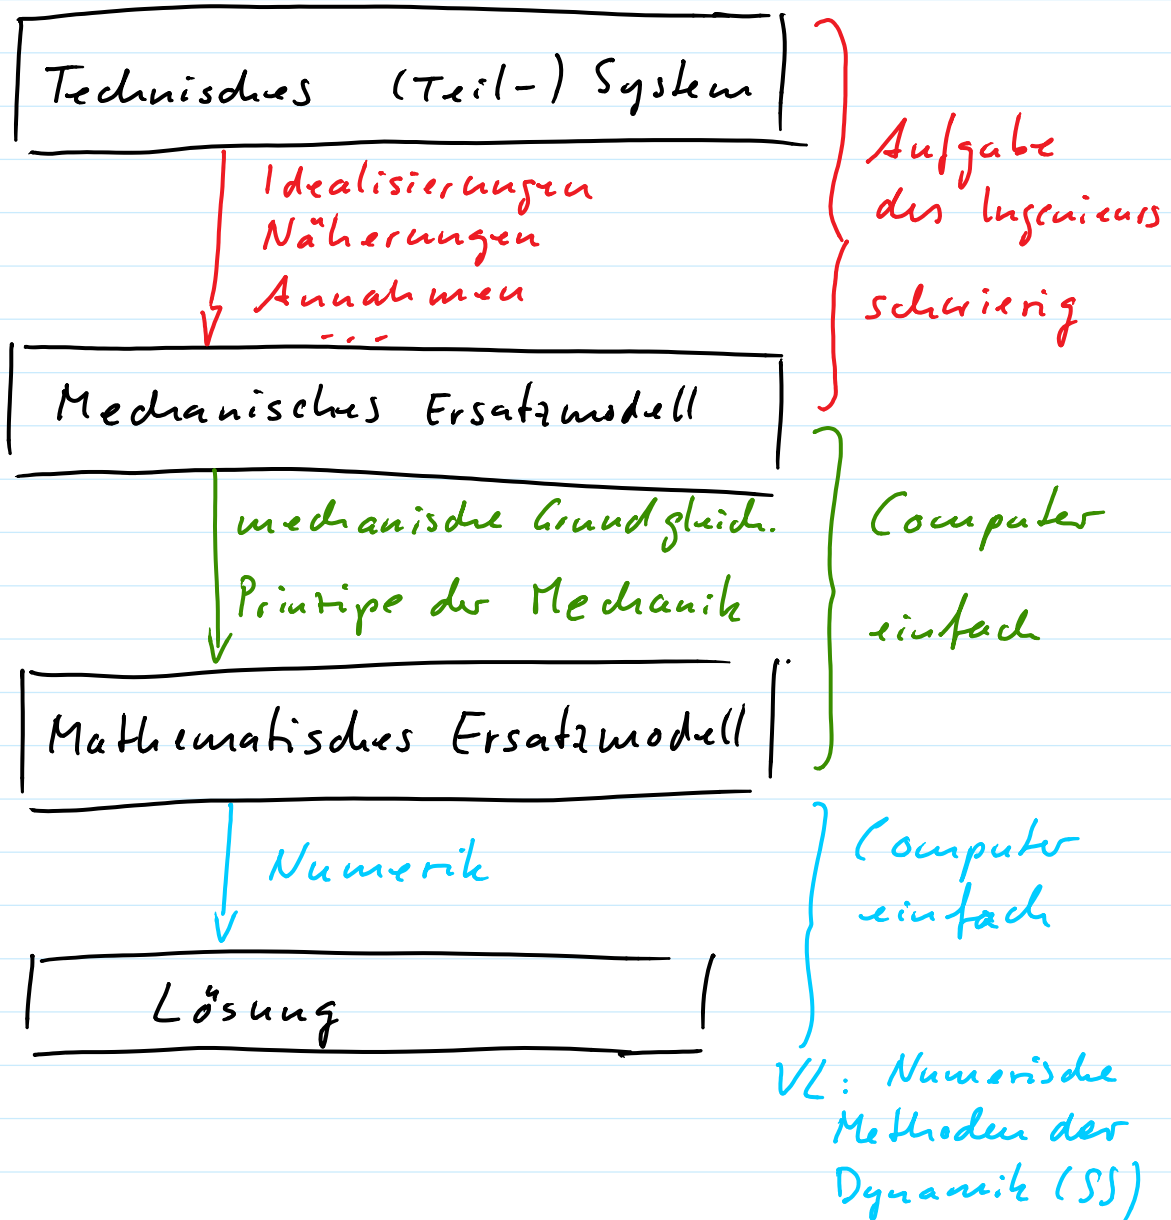 Technisches (Teil-) System
Idealisierungen
Näherungen
Annahmen
...
Aufgabe
des Ingenieurs
schwierig
Mechanisches Ersatzmodell
mechanische Grundgleich.
Prinzipe der Mechanik
Computer
einfach
Mathematisches Ersatzmodell
Numerik
Computer
einfach
Lösung
VL: Numerische
Methoden der
Dynamik (SS)